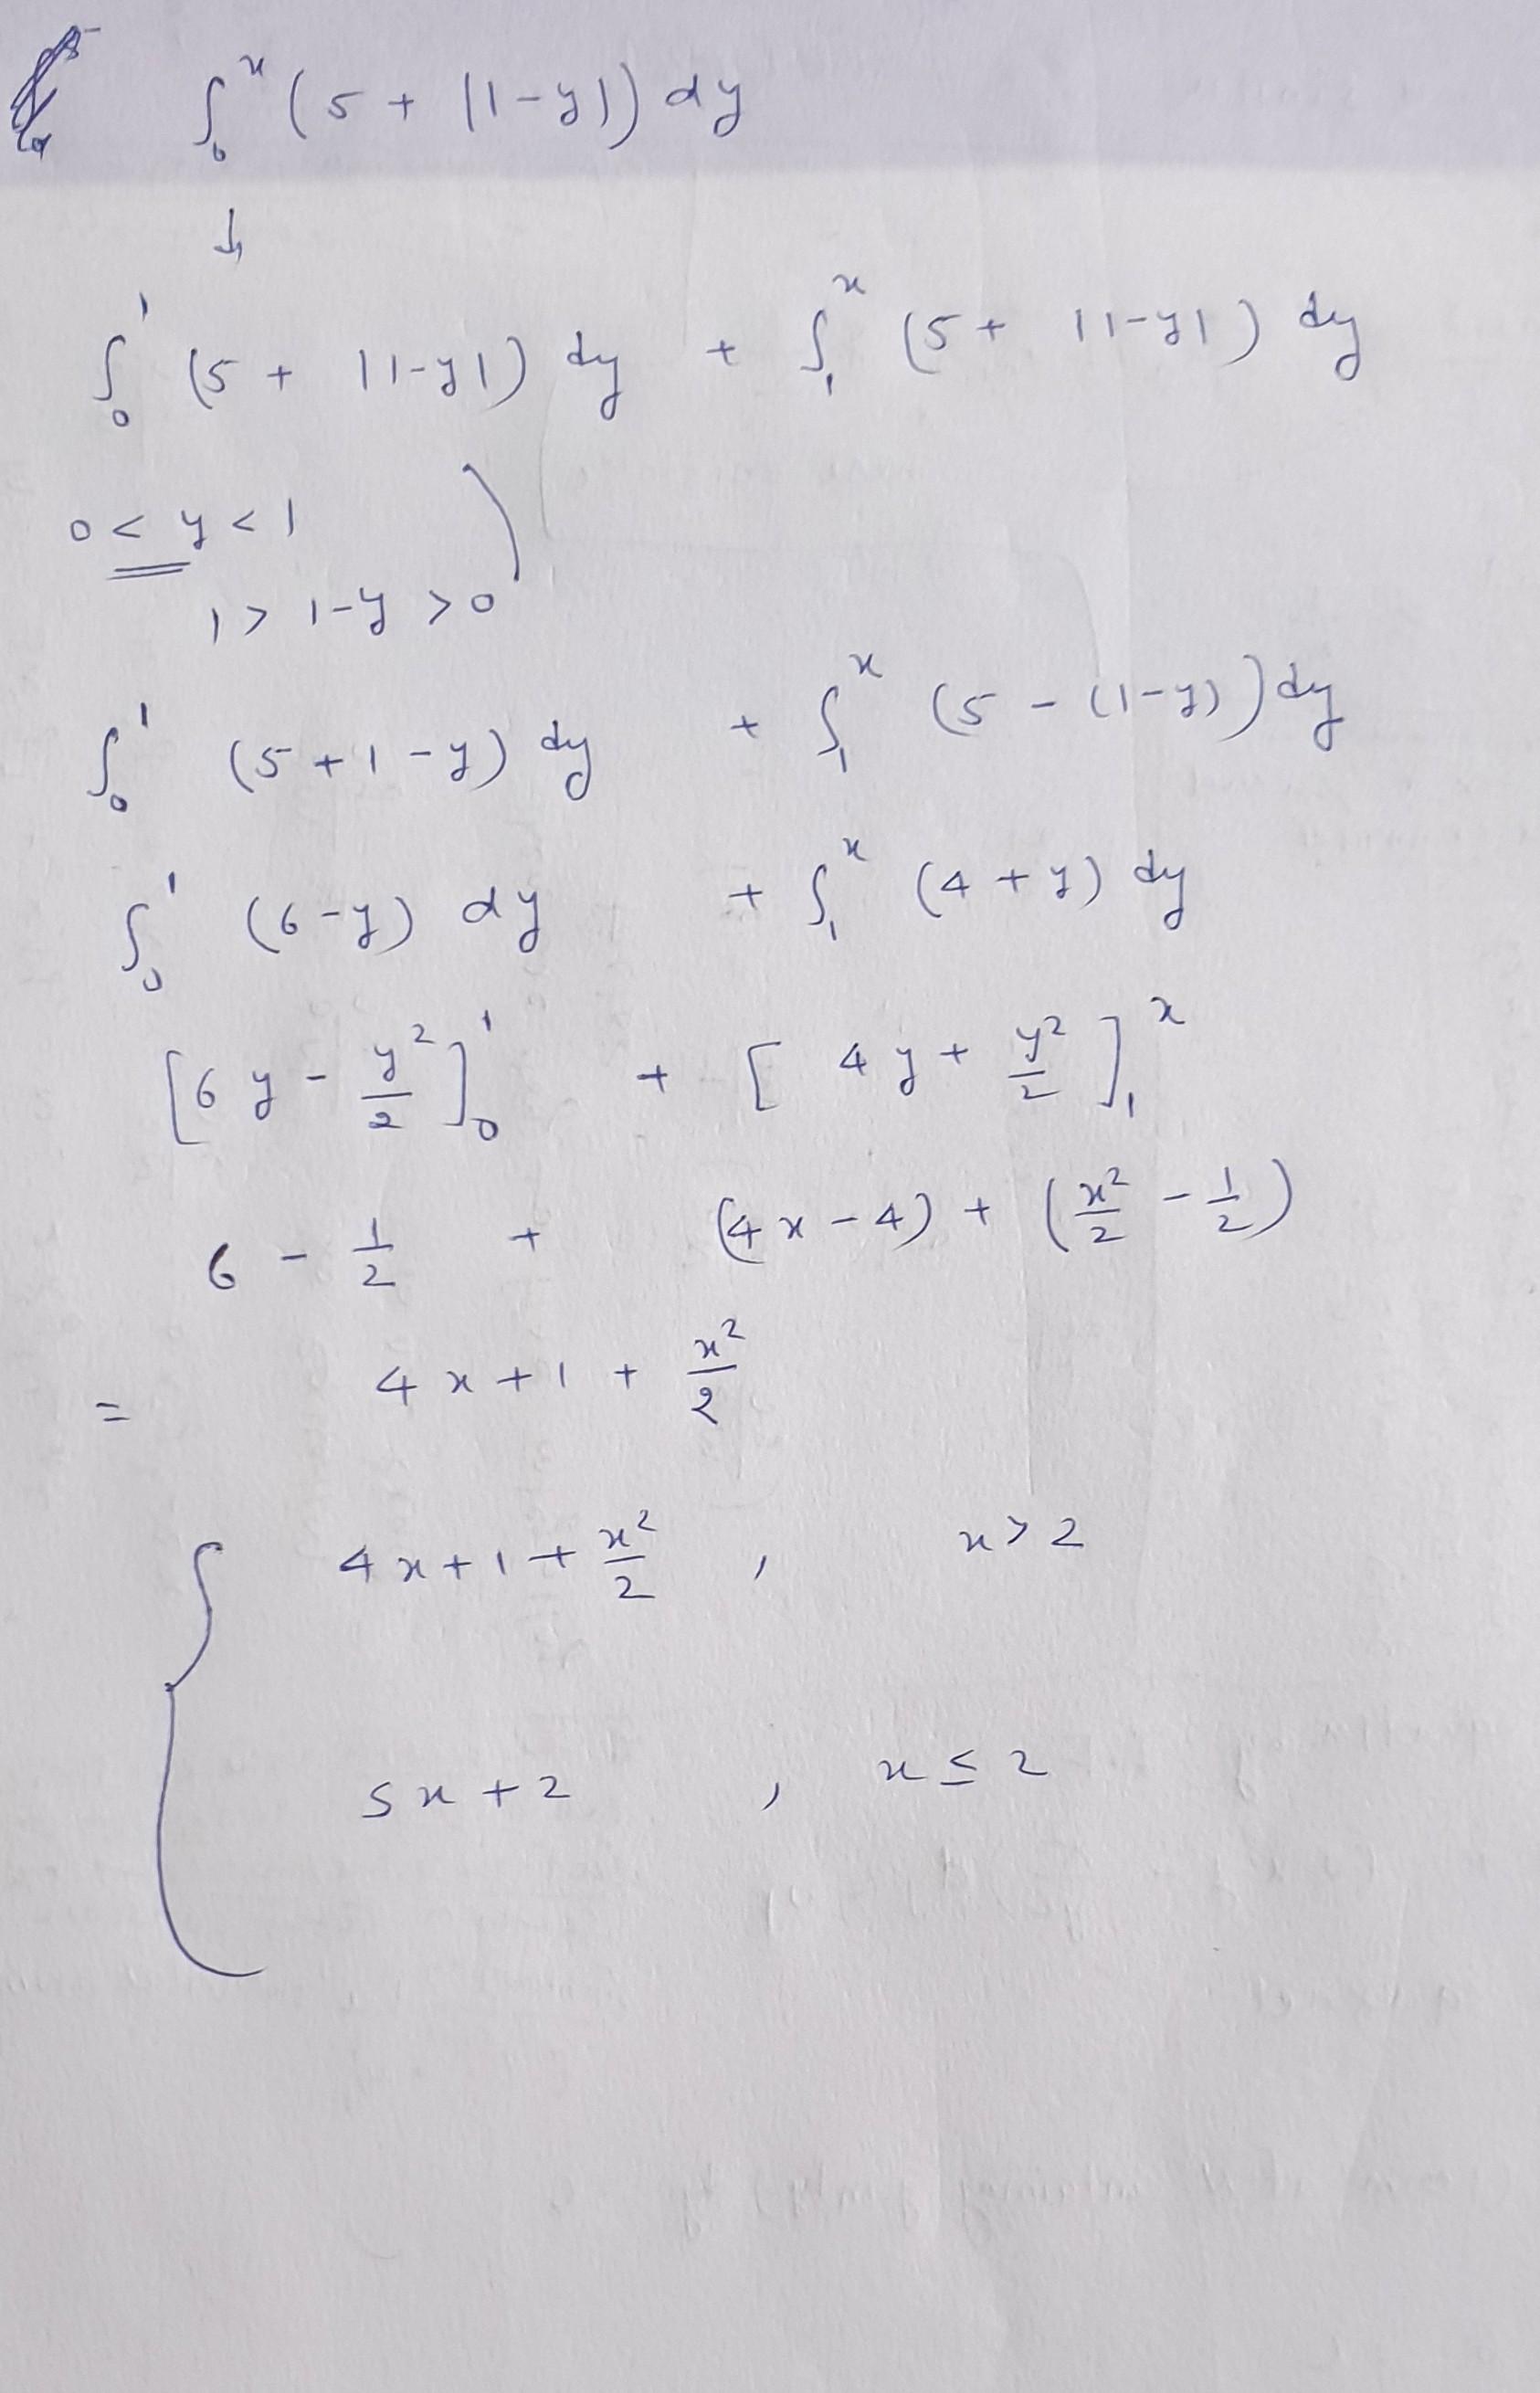 ∫₀ˣ (5 + |1-y|) dy
↓
∫₀¹ (5 + |1-y|) dy + ∫₁ˣ (5 + |1-y|) dy
0 < y < 1
1 > 1-y > 0
∫₀¹ (5 + 1 - y) dy + ∫₁ˣ (5 - (1-y)) dy
∫₀¹ (6-y) dy + ∫₁ˣ (4 + y) dy
[6y - y²/2]₀¹ + [4y + y²/2]₁ˣ
6 - 1/2 + (4x - 4) + (x²/2 - 1/2)
= 4x + 1 + x²/2
{ 4x + 1 + x²/2 , x > 2
5x + 2 , x ≤ 2